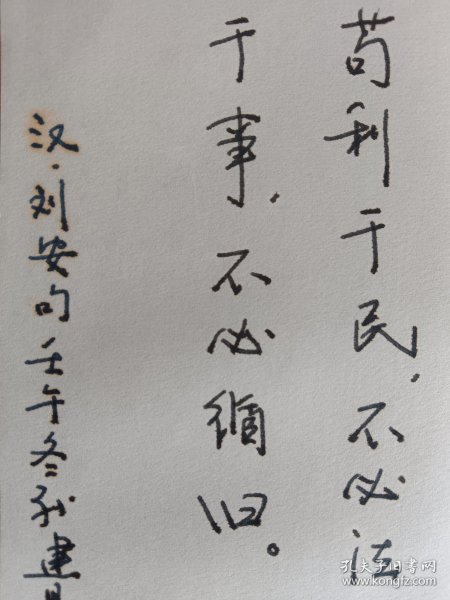 苟利于民，不必法
于事，不必循旧。
汉·刘安句 壬午冬 建
孔夫子旧书网
www.kongfz.com